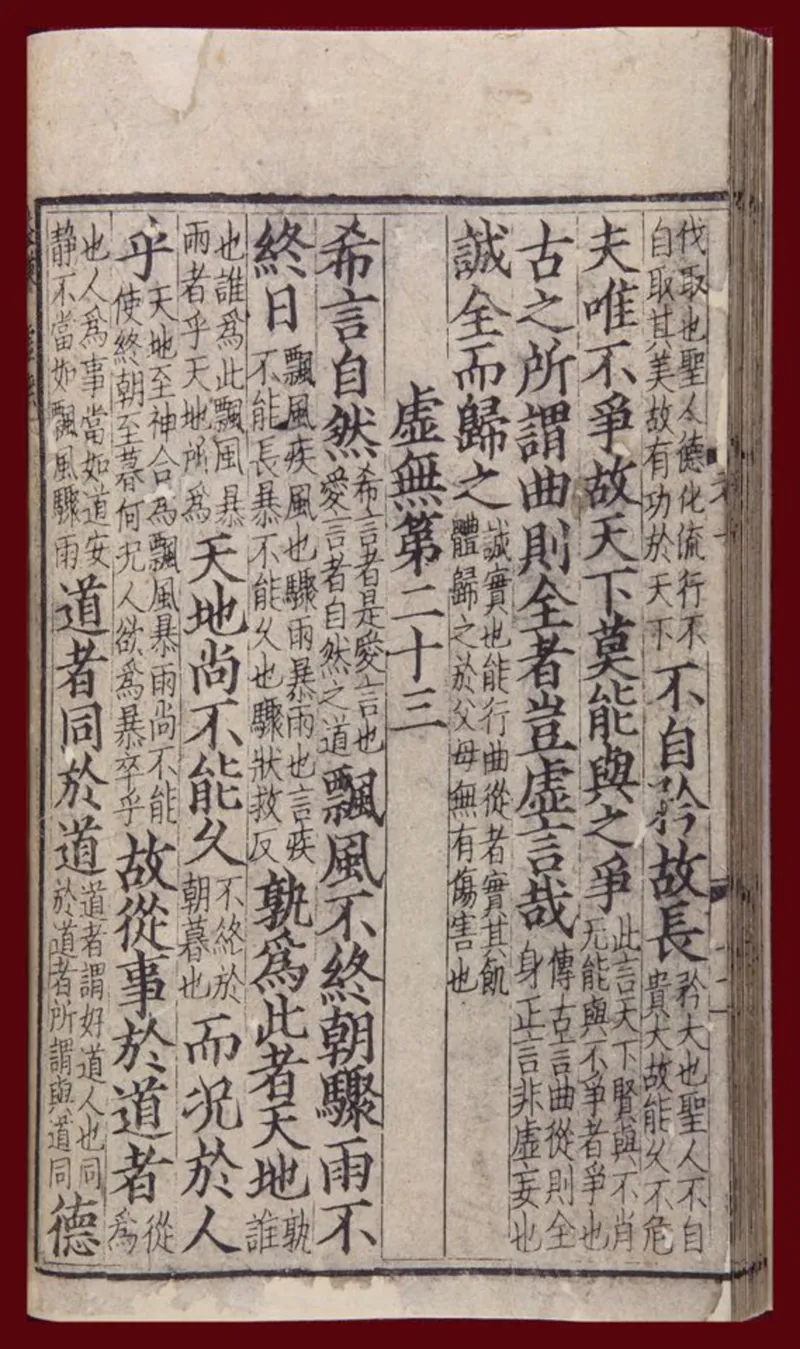 伐取也聖人德化流行不自取其美故有功於天下不自矜故長矜大也聖人不自貴大故能久不危
夫唯不爭故天下莫能與之爭此言天下賢與不肖无能與不爭者爭也
古之所謂曲則全者豈虚言哉傳古言曲從則全身正言非虚妄也
誠全而歸之誠實也能行曲從者實其飢體歸之於父母無有傷害也
虚無第二十三
希言自然希言者是愛言也愛言者自然之道飄風不終朝驟雨不
終日飄風疾風也驟雨暴雨也言疾不能長暴不能久也驟狀救反孰爲此者天地孰誰
也誰爲此飄風暴雨者乎天地所爲天地尚不能久不終於朝暮也而况於人
乎天地至神合爲飄風暴雨尚不能使終朝至暮何况人欲爲暴卒乎故從事於道者從爲
也人爲事當如道安静不當如飄風驟雨道者同於道道者謂好道人也同於道者所謂與道同德